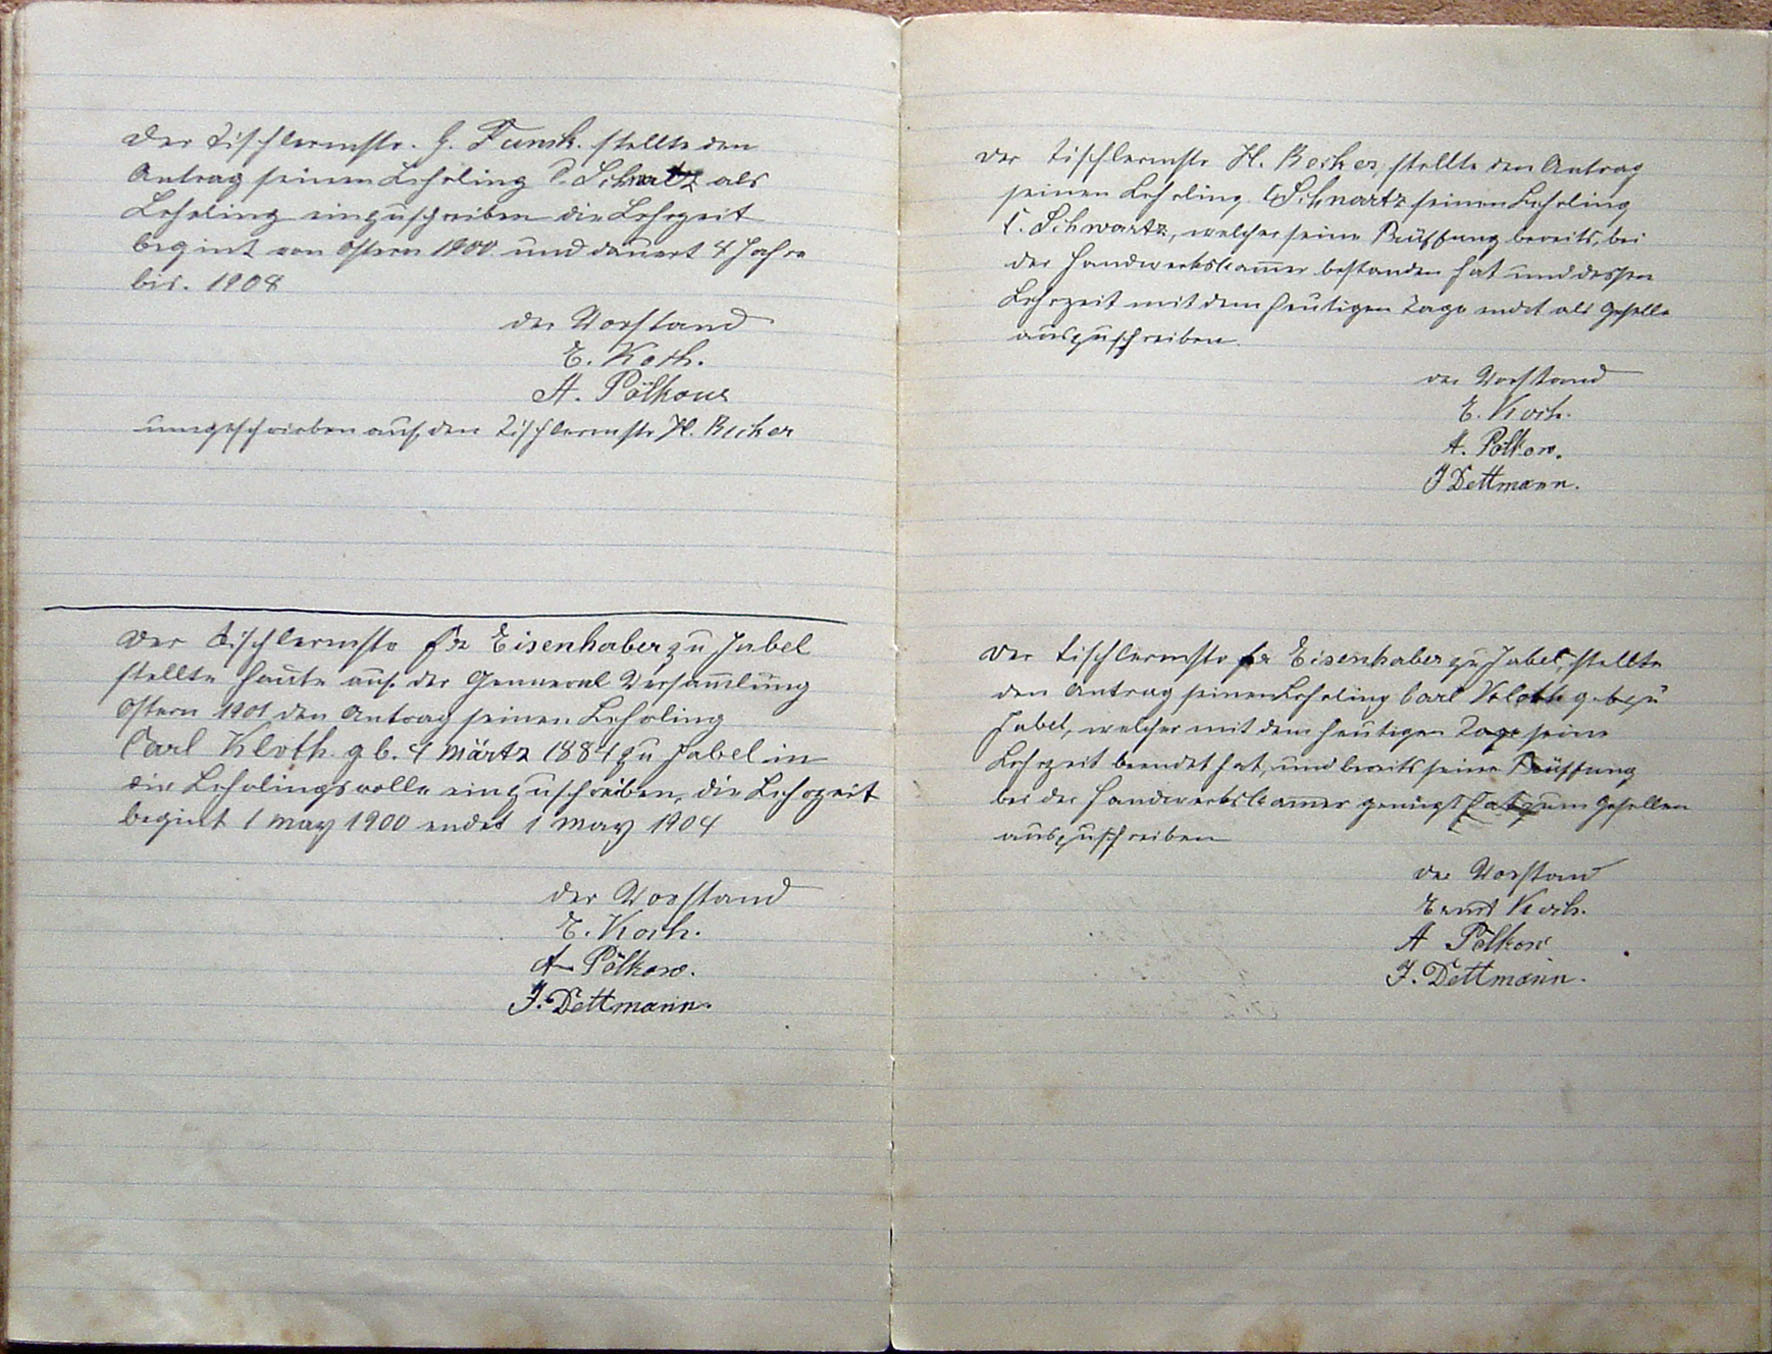 Der Tischlermstr. H. Funck. stellte den
Antrag seinen Lehrling C. Schwartz als
Lehrling einzuschreiben die Lehrzeit
begint von Ostern 1900 und dauert 4 Jahre
bis. 1904
der Vorstand
E. Koch.
A. Pölkow
umgeschrieben auf den Tischlermstr H. Becker
Der Tischlermstr Fr Eisenhaber zu Jabel
stellte heute auf der Genneral Versamlung
Ostern 1901 den Antrag seinen Lehrling
Carl Kloth. gb. 4 Märtz 1884 zu Jabel in
die Lehrlingsrolle einzuschreiben, die Lehrzeit
begint 1 May 1900 endet 1 May 1904
der Vorstand
E. Koch.
A Pölkow.
J. Dettmann.
Der Tischlermstr H. Becker, stellte den Antrag
seinen Lehrling C Schwartz seinen Lehrling
C. Schwartz, welcher seine Prüffung bereits, bei
der Handwerkskamer bestanden hat und dessen
Lehrzeit mit dem heutigen Tage endet als Geselle
auszuschreiben.
der Vorstand
E. Koch.
A. Pölkow.
J Dettmann.
Der Tischlermstr Fr Eisenhaber zu Jabel, stellte
den Antrag seinen Lehrling Carl Kloth geb zu
Jabel, welcher mit dem heutigen Tage seine
Lehrzeit beendet hat, und bereits seine Prüffung
bei der Handwerkskamer genügt hat zum Gesellen
auszuschreiben
der Vorstand
Ernst Koch.
A Pölkow
J. Dettmann.